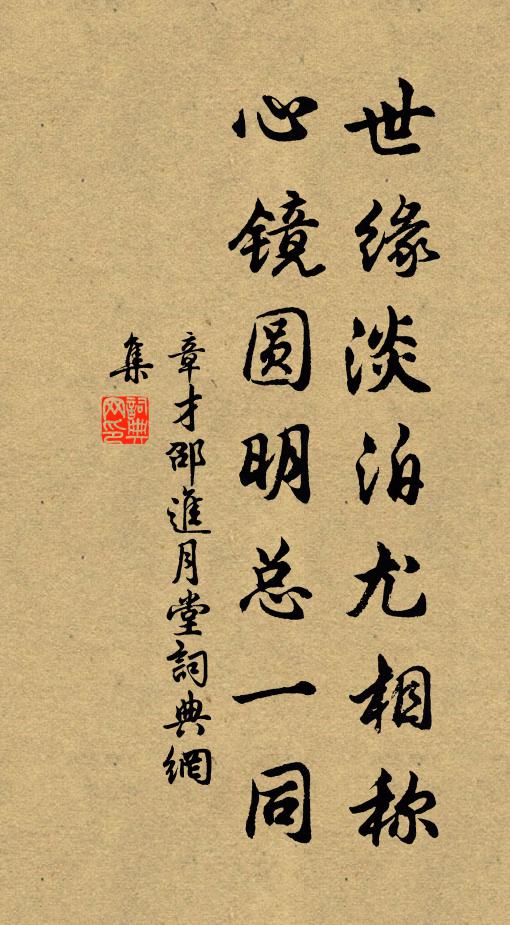 世缘淡泊尤相称
心镜圆明总一同
章才邵進月堂詞典網
集
詞典
网印